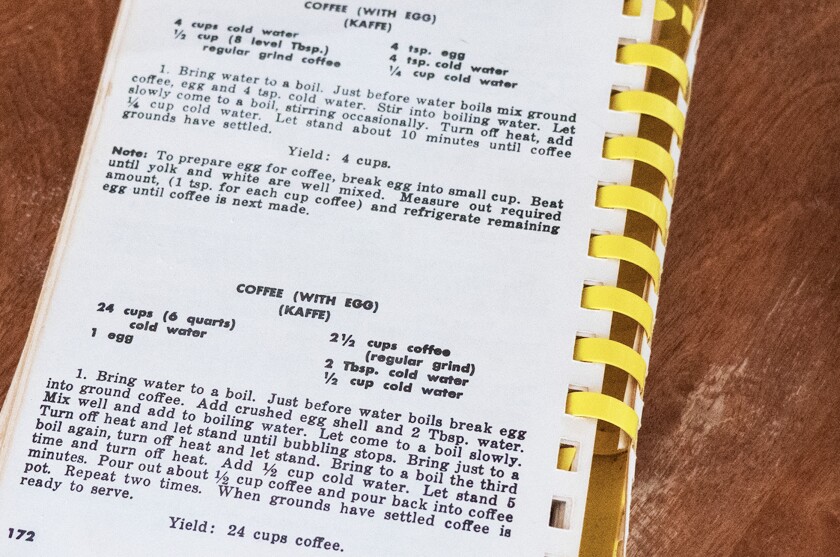 COFFEE (WITH EGG)
(KAFFE)
4 cups cold water
½ cup (8 level Tbsp.)
regular grind coffee
4 tsp. egg
4 tsp. cold water
¼ cup cold water
1. Bring water to a boil. Just before water boils mix ground
coffee, egg and 4 tsp. cold water. Stir into boiling water. Let
slowly come to a boil, stirring occasionally. Turn off heat, add
¼ cup cold water. Let stand about 10 minutes until coffee
grounds have settled.
Yield: 4 cups.
Note: To prepare egg for coffee, break egg into small cup. Beat
until yolk and white are well mixed. Measure out required
amount, (1 tsp. for each cup coffee) and refrigerate remaining
egg until coffee is next made.
COFFEE (WITH EGG)
(KAFFE)
24 cups (6 quarts)
cold water
1 egg
2½ cups coffee
(regular grind)
2 Tbsp. cold water
½ cup cold water
1. Bring water to a boil. Just before water boils break egg
into ground coffee. Add crushed egg shell and 2 Tbsp. water.
Mix well and add to boiling water. Let come to a boil slowly.
Turn off heat and let stand until bubbling stops. Bring just to a
boil again, turn off heat and let stand. Bring to a boil the third
time and turn off heat. Add ½ cup cold water. Let stand 5
minutes. Pour out about ½ cup coffee and pour back into coffee
pot. Repeat two times. When grounds have settled coffee is
ready to serve.
Yield: 24 cups coffee.
172